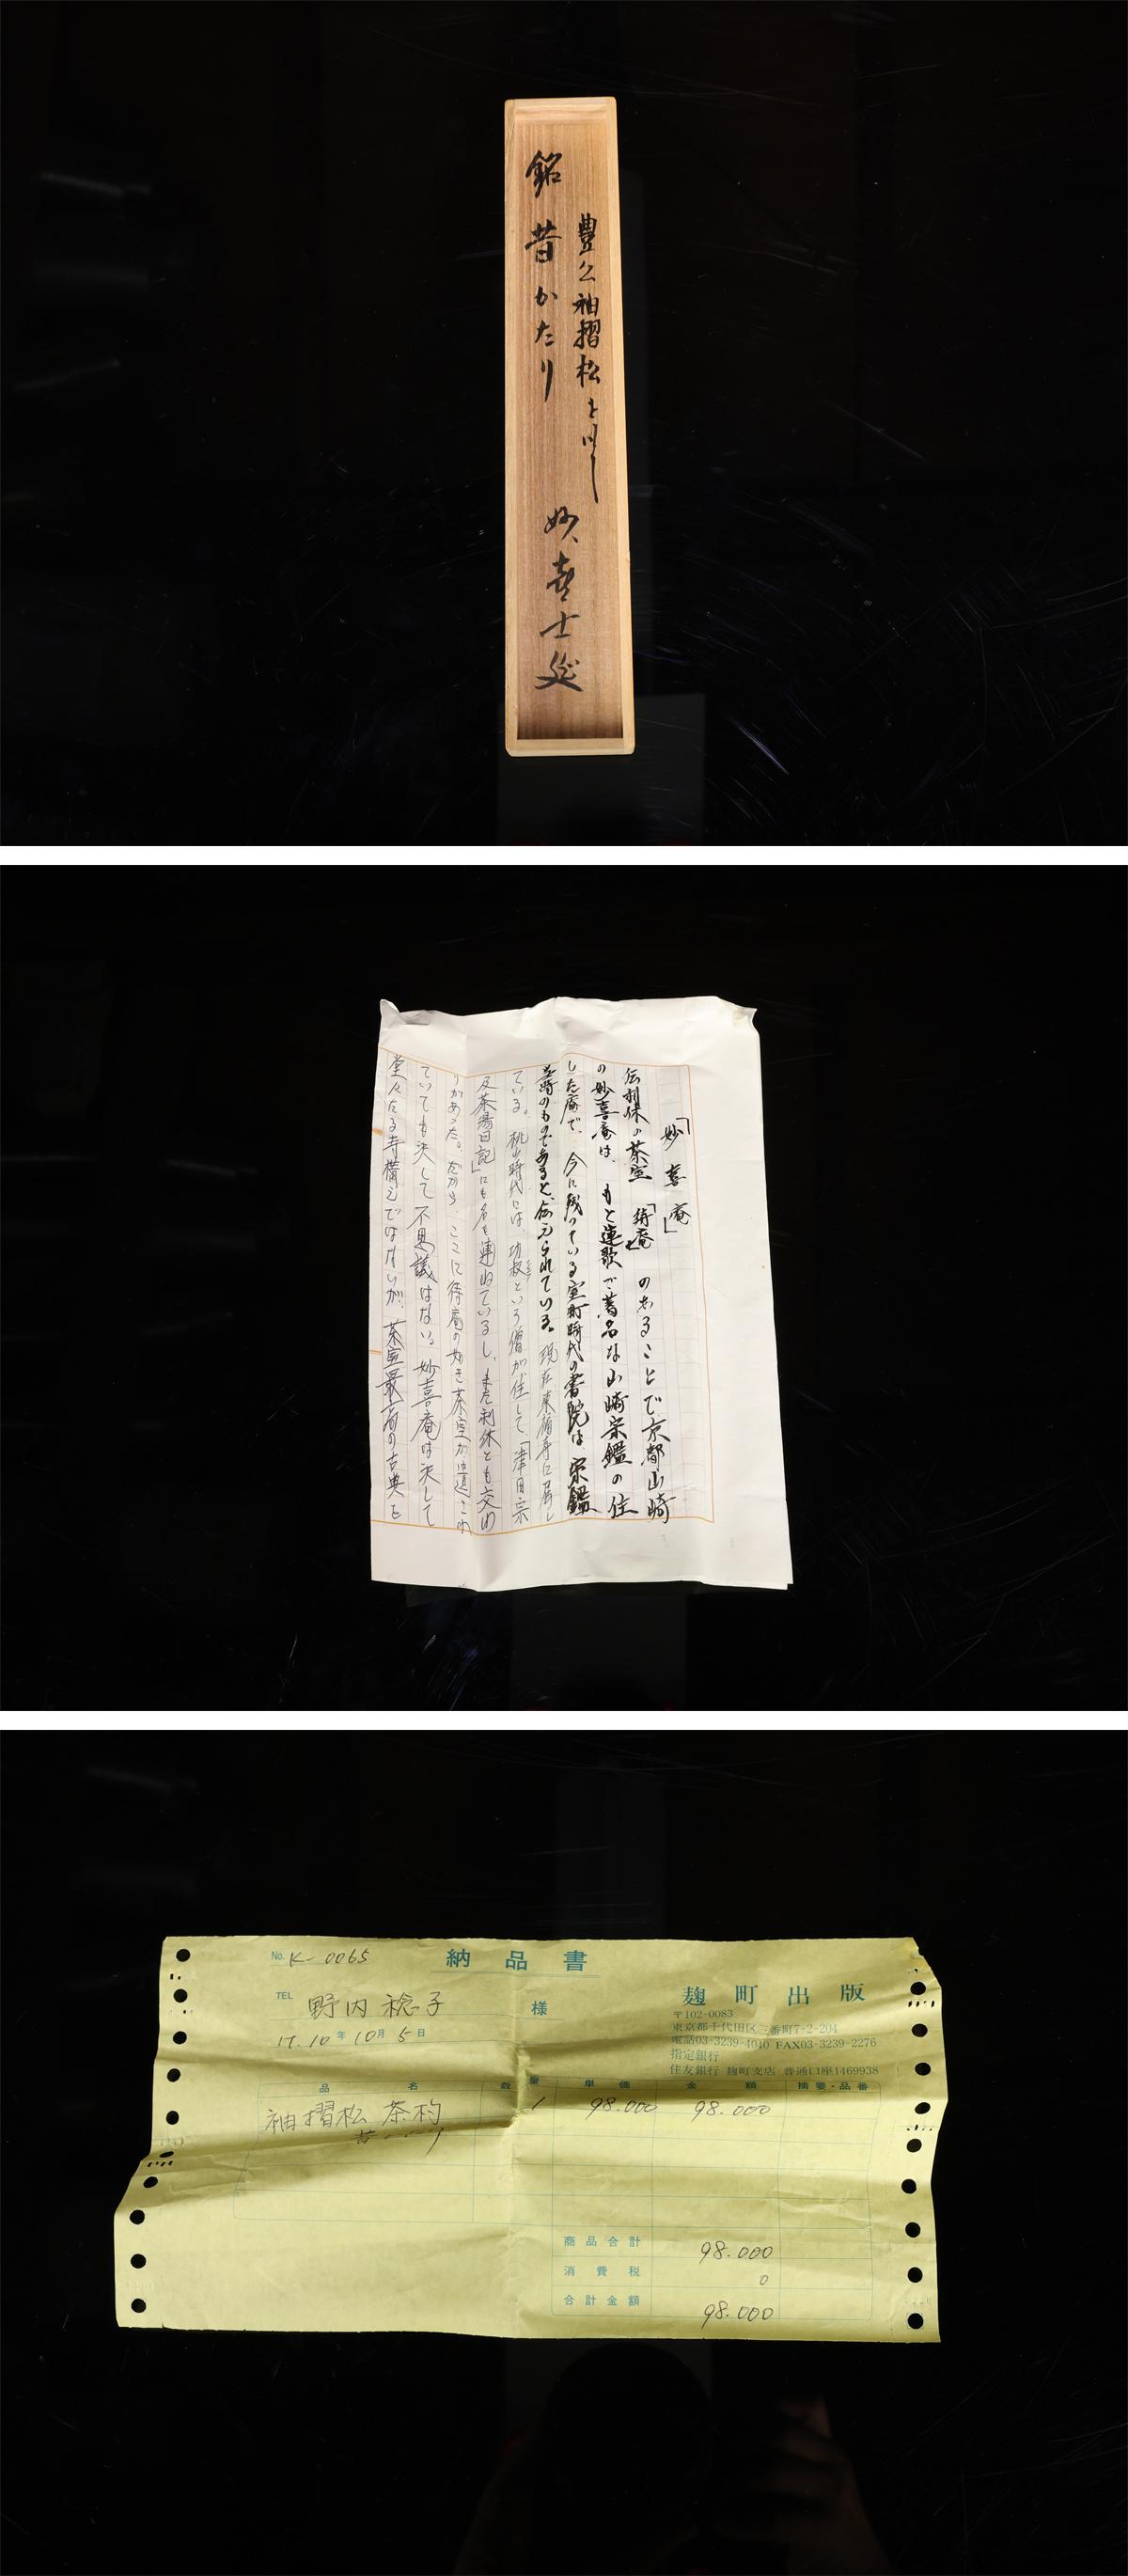 豊公袖摺松を以し
銘 昔かたり
妙喜士延
「妙喜庵」
伝利休の茶室「待庵」のあることで京都山崎
の妙喜庵は、もと連歌で著名な山崎宗鑑の住
した庵で、今に残っている室町時代の書院は、宗鑑
当時のものであると伝えられている。現在東福寺に属し
ている。桃山時代には、功叔という僧が住して「津田宗
及茶湯日記」にも名を連ねているし、また利休とも交わ
りがあった。だから、ここに待庵の如き茶室が造られ
ていても決して不思議はない。妙喜庵は決して
堂々たる寺構えではないが、茶室最高の古典を
No. K-0065
納品書
TEL
野内 稔子 様
17.10年10月5日
麹町出版
〒102-0083
東京都千代田区三番町7-2-204
電話03-3239-4010 FAX03-3239-2276
指定銀行
住友銀行 麹町支店 普通口座1469938
品名 数量 単価 金額 摘要・品番
袖摺松 茶杓 1 98.000 98.000
商品合計 98.000
消費税 0
合計金額 98.000